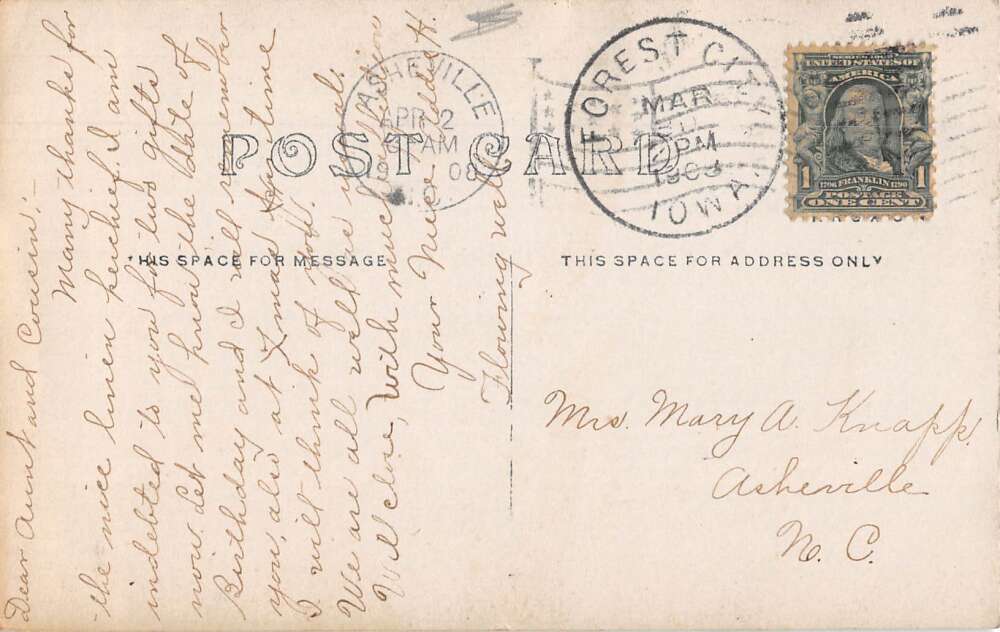 POST CARD
THIS SPACE FOR MESSAGE
THIS SPACE FOR ADDRESS ONLY
ASHEVILLE
APR 2
AM
FOREST CITY
MAR
PM
1908
IOWA
SERIES 1902
UNITED STATES OF
AMERICA
1 1
FRANKLIN
POSTAGE
ONE CENT
Mrs. Mary A. Knapp
Asheville
N. C.
Dear Aunt and Cousin:—
Many thanks for
the nice linen kerchief. I am
indebted to you for two gifts
now. Let me know the date of
Birthday and I will remember
you, also at Xmas time
I will think of you,
We are all well and wish
with much affection
Your Niece Addie H.
Flowing well